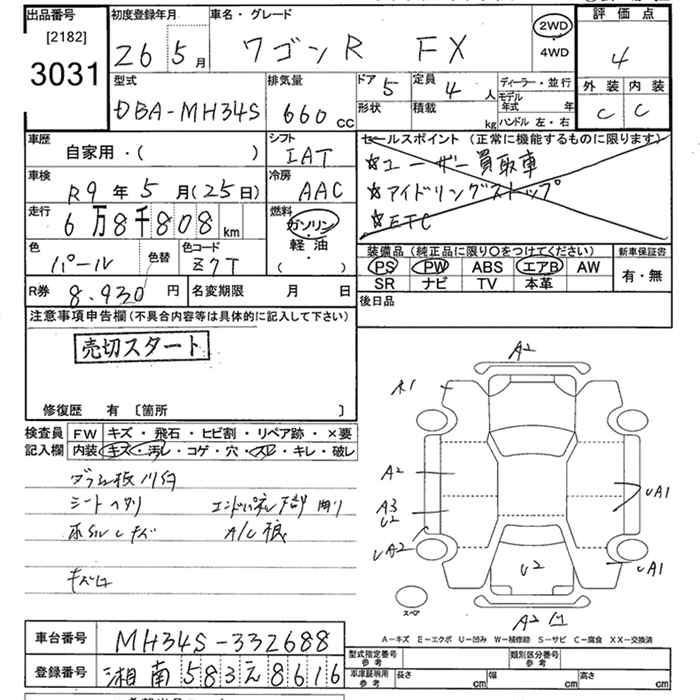 出品番号 初度登録年月 車名・グレード 評価点
[2182] 3031
26年5月 ワゴンR FX 2WD 4WD 4
型式 排気量 ドア 5 定員 4人 ディーラー・並行 外装 内装
DBA-MH34S 660cc 形状 積載 kg モデル年式 年 C C
ハンドル 左・右
車歴 シフト セールスポイント (正常に機能するものに限ります)
自家用・( ) IAT ☆ユーザー買取車
車検 冷房 ☆アイドリングストップ
R9年5月(25日) AAC ☆ETC
走行 燃料
6万8千808km ガソリン・軽油 ( )
色 色替 色コード 装備品 (純正品に限り○をつけてください) 新車保証書
パール Z7T PS PW ABS エアB AW 有・無
SR ナビ TV 本革
R券 8.930円 名変期限 月 日 後日品
注意事項申告欄(不具合内容等は具体的に記入して下さい)
売切スタート
修復歴 有 〔箇所 〕
検査員 FW キズ・飛石・ヒビ割・リペア跡・×要
記入欄 内装 キズ・汚レ・コゲ・穴・スレ・キレ・破レ
シートヘタリ
A2
A1
A2
A3
U2
UA2
UA1
UA1
U2
スペア
A2
A-キズ E-エクボ U-凹み W-補修跡 S-サビ C-腐食 XX-交換済
車台番号 MH34S-332688
登録番号 湘南583え8616
型式指定番号 参考 類別区分番号 参考
車庫証明用 参考 長さ cm 幅 cm 高さ cm